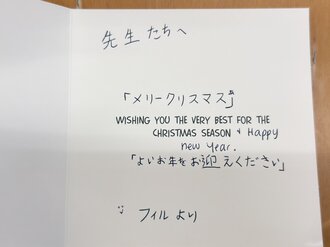 先生たちへ
「メリークリスマス」
WISHING YOU THE VERY BEST FOR THE
CHRISTMAS SEASON & Happy
new Year.
「よいお年をお迎えください」
フィルより